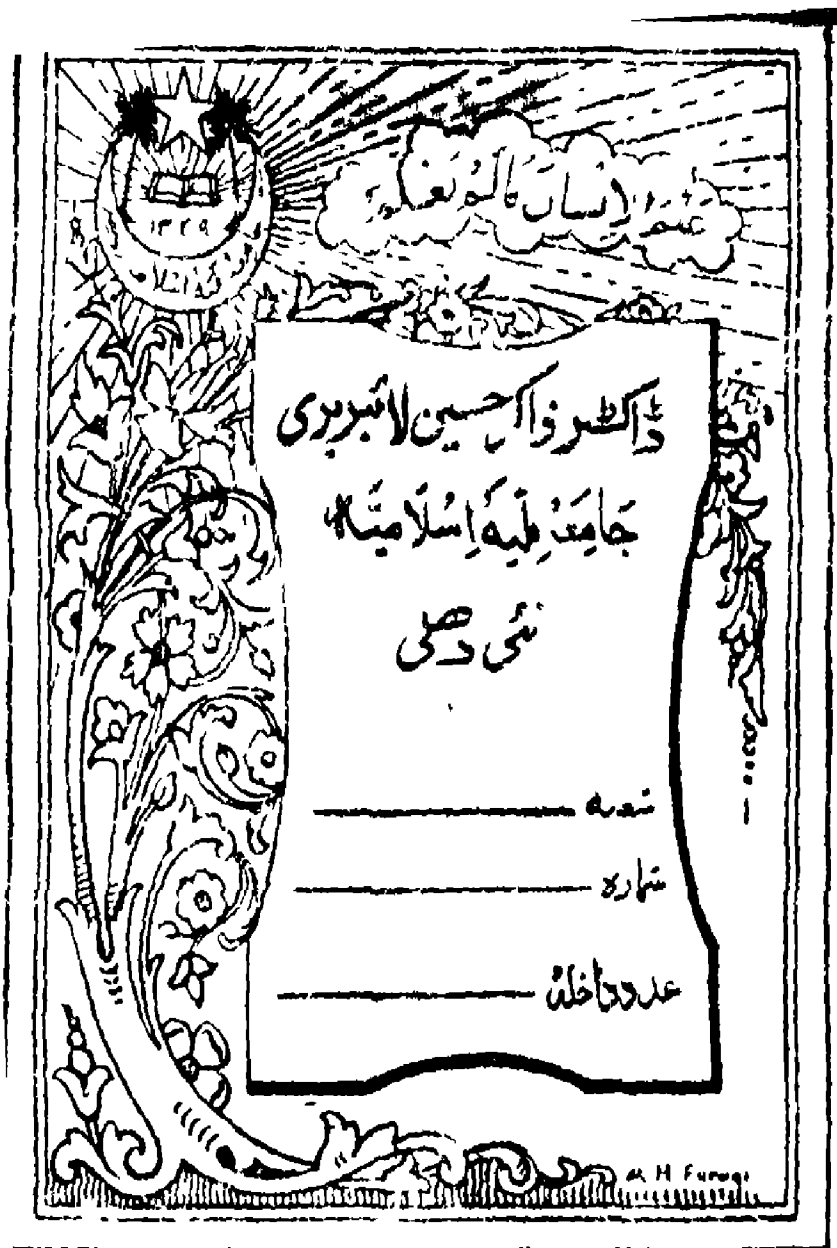 عَلَّمَ الْاِنْسَانَ مَا لَمْ يَعْلَمْ
۱۳۲۹
ڈاکٹر ذاکر حسین لائبریری
جَامِعَہ مِلّیَہ اِسْلَامیَّہ
نئی دھلی
شعبہ
شمارہ
عدد داخلہ
M H Furuqi